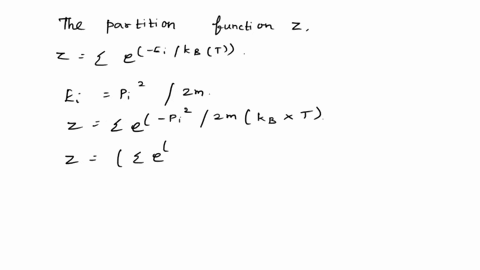 The partition function Z.
Z = Σ e^(-Ei / kB (T)).
Ei = Pi² / 2m.
Z = Σ e^(-Pi² / 2m (kB × T).
Z = ( Σ e^(